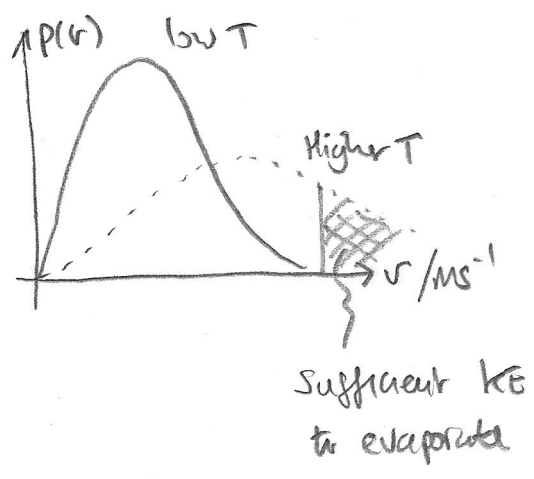 p(v)
low T
Higher T
v /ms⁻¹
Sufficient KE
to evaporate